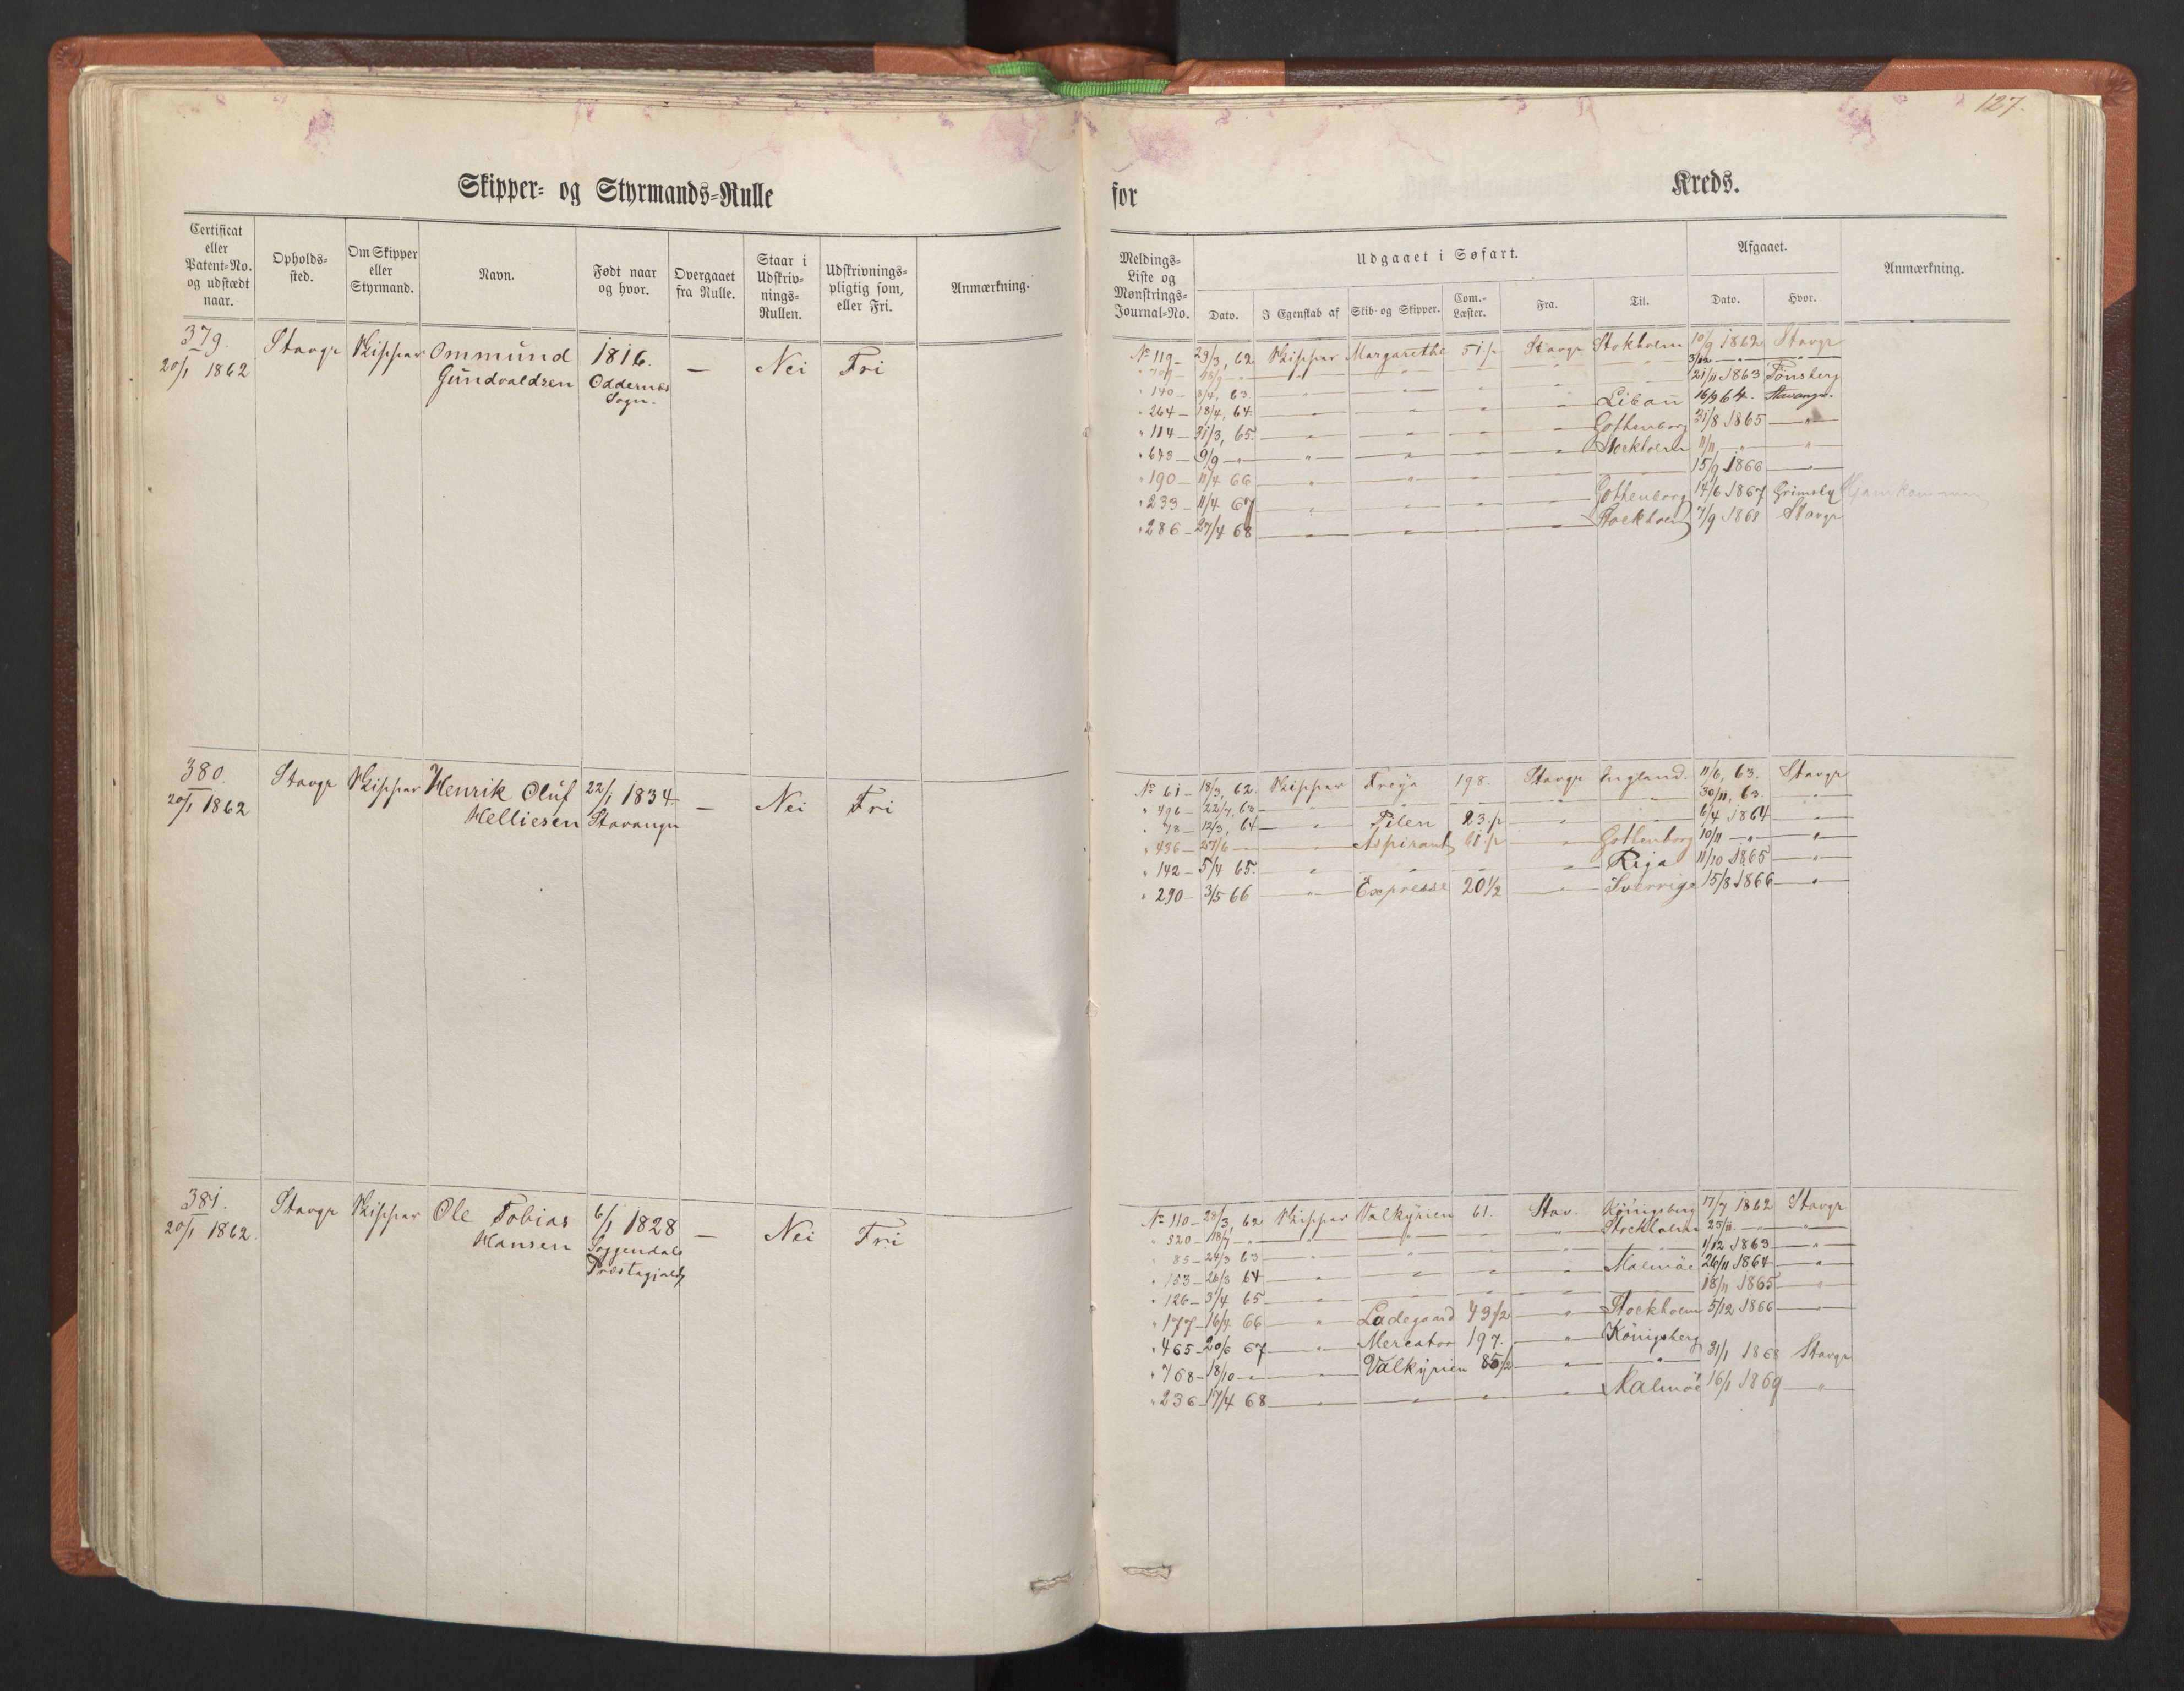 127.
Skipper- og Styrmands-Rulle
for Kreds.
Certificat eller Patent-No. og udstædt naar.
Opholds-sted.
Om Skipper eller Styrmand.
Navn.
Født naar og hvor.
Overgaaet fra Rulle.
Staar i Udskriv-nings-Rullen.
Udskrivnings-pligtig som, eller Fri.
Anmærkning.
Meldings-Liste og Mønstrings-Journal-No.
Udgaaet i Søfart.
Dato.
I Egenskab af
Skib- og Skipper.
Com.-Læster.
Fra.
Til.
Afgaaet.
Dato.
Hvor.
Anmærkning.
379. Stavgr Skipper Ommund 1816. — Nei Fri
20/1 1862 Gundvaldsen Oddernes
Sogn.
No 119 — 29/3, 62 Skipper Margarethe 51 Stavgr Stokholm 10/9 1862 Stavgr
" 140 — 8/4, 63 " " " " " 21/11 1863 Tønsberg
" 264 — 18/4, 64 " " " " Libau 16/9 64. Stavanger
" 114 — 31/3, 65. " " " " Gothenborg 31/8 1865 "
" 643 — 9/9 " " " " " Stockholm 11/11 " "
" 190 — 11/4 66 " " " " " 15/9 1866 "
" 233 — 11/4 67 " " " " Gothenborg 14/6 1867 Grimsby Hjemkommen
" 286 — 27/4 68 " " " " Stockholm 7/9 1868 Stavgr
380. Stavgr Skipper Henrik Oluf 22/1 1834 — Nei Fri
20/1 1862 Helliesen Stavanger
No 61 — 18/3, 62. Skipper Freya 198. Stavgr England. 11/6, 63. Stavgr
" 496 — 22/7, 63 " " " " " 30/11, 63. "
" 78 — 12/3, 64 " Pilen 23 " " 6/4 1864 "
" 436 — 27/6 " " Aspirant 61 " Gothenborg 10/11 " "
" 142 — 5/4 65. " " " " Riga 11/10 1865 "
" 290 — 3/5 66 " Expresse 20 1/2 " Sverrige 15/8 1866 "
381. Stavgr Skipper Ole Tobias 6/1 1828 — Nei Fri
20/1 1862. Hansen Soggendals
Præstegjæld
No 110 — 28/3, 62 Skipper Valkyrien 61. Stav. Königsberg 17/7 1862 Stavgr
" 520 — 18/7 " " " " " Stockholm 25/11 " "
" 85 — 24/3 63 " " " " " 1/12 1863 "
" 153 — 26/3 64 " " " " Malmöe 26/11 1864 "
" 126 — 3/4 65 " " " " " 18/11 1865 "
" 177 — 16/4 66 " Ladegaard 43 1/2 " Stockholm 5/12 1866 "
" 465 — 20/6 67 " Mercator 197. " Königsberg
" 768 — 18/10 " " Valkyrien 85 1/2 " " 31/1 1868 Stavgr
" 236 — 17/4 68 " " " " Malmöe 16/1 1869 "